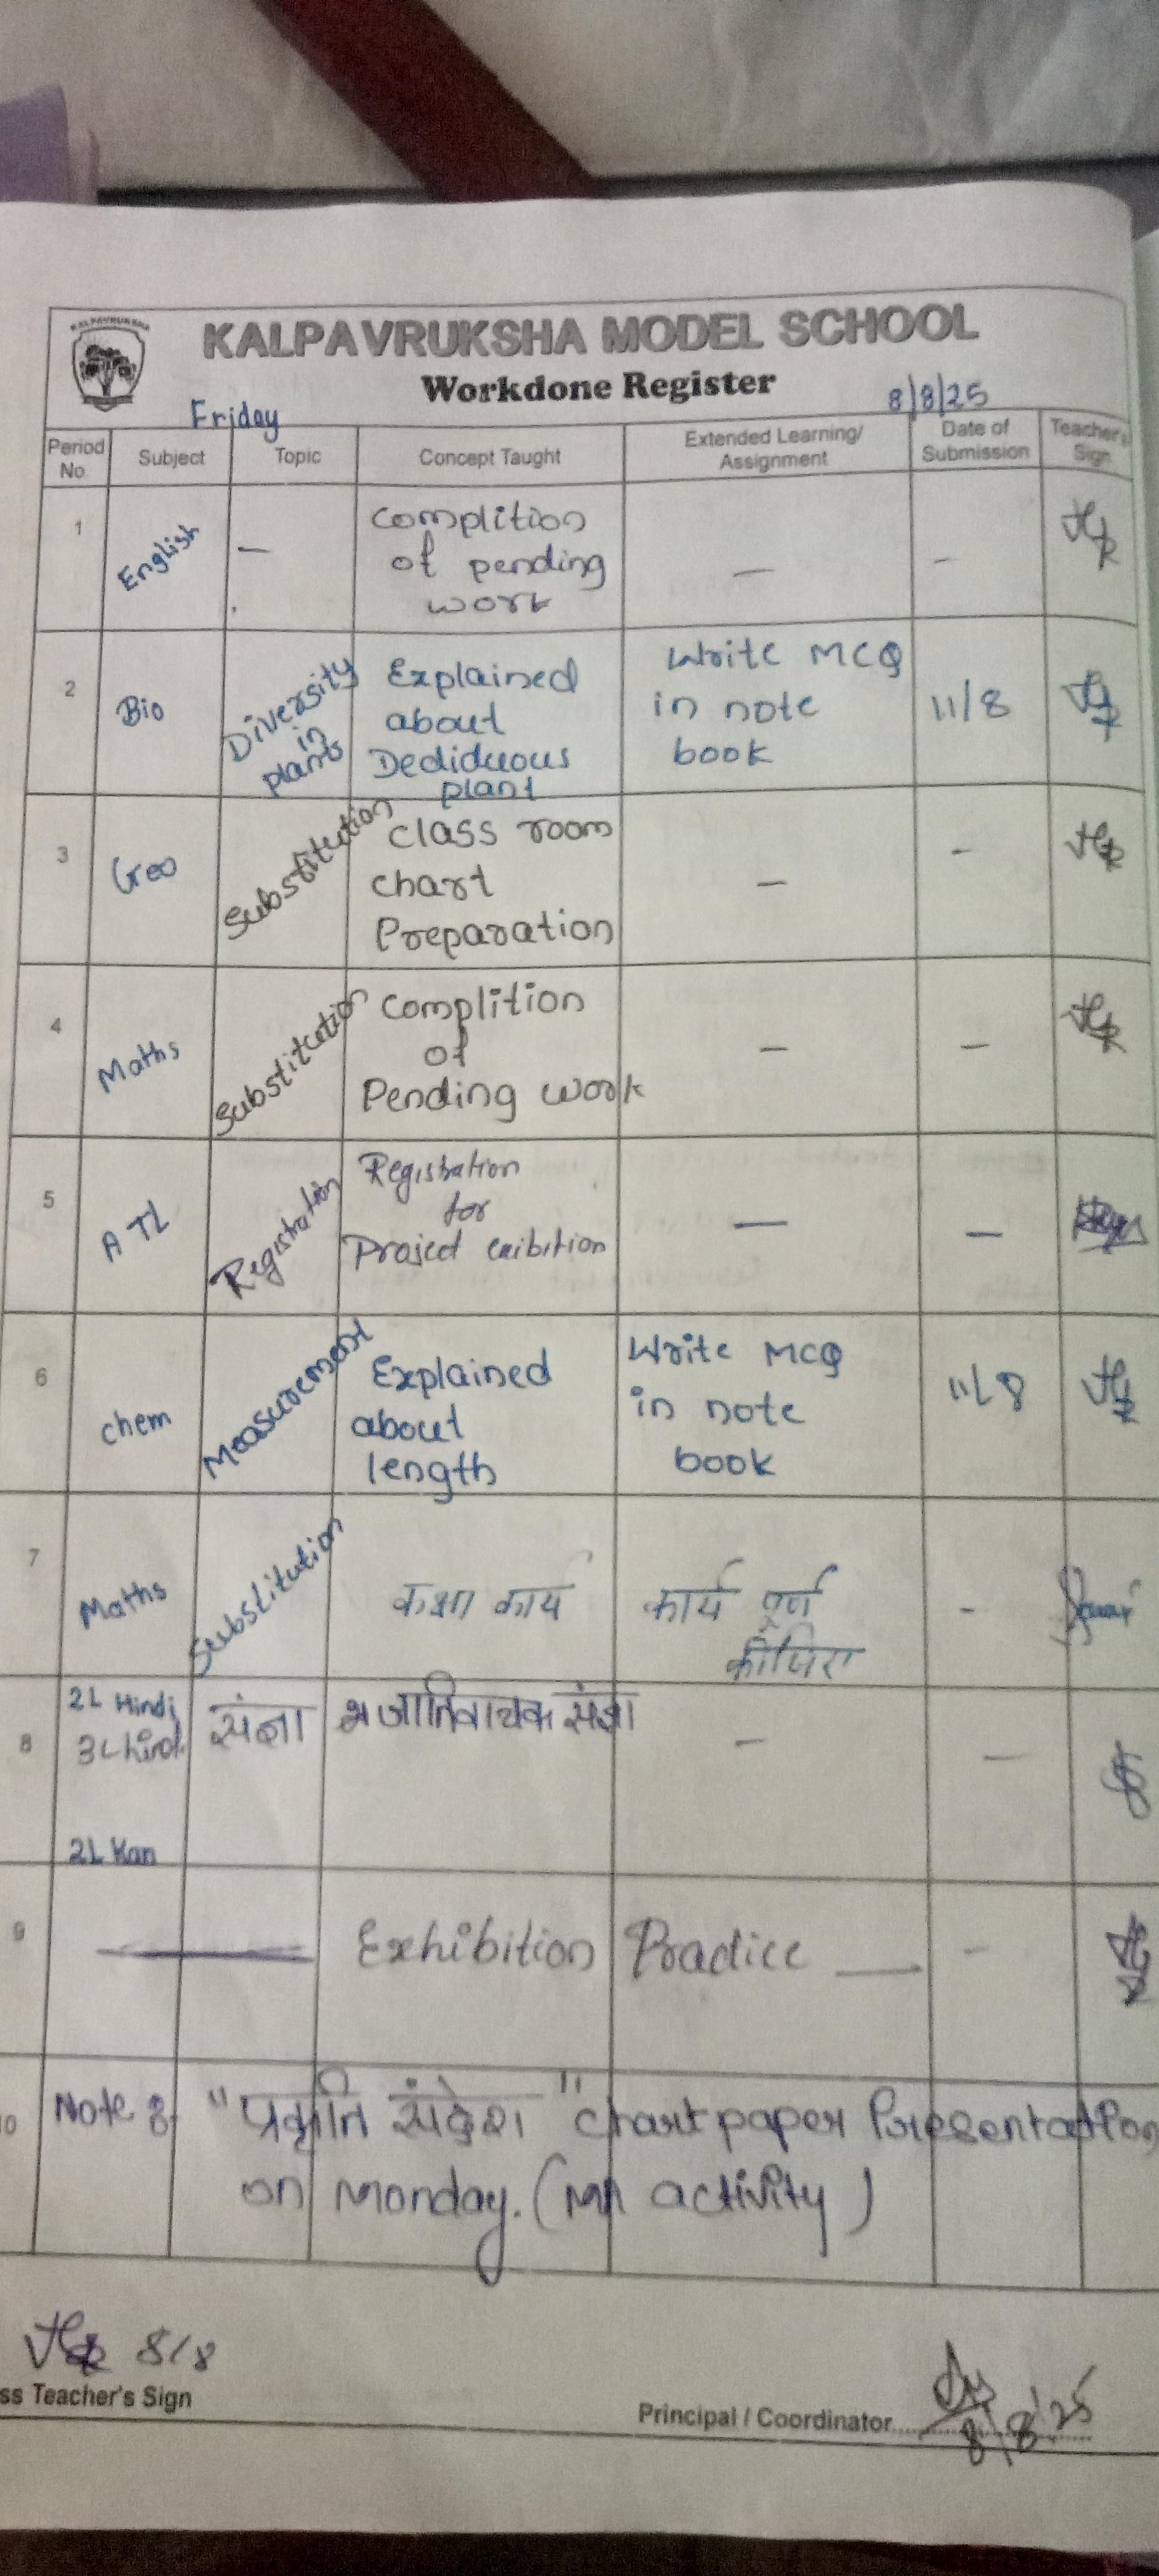 KALPAVRUKSHA
KALPAVRUKSHA MODEL SCHOOL
Workdone Register
Friday
8/8/25
Period No. Subject Topic Concept Taught Extended Learning/ Assignment Date of Submission Teacher's Sign
1 English — Complition
of pending
work — –
2 Bio Diversity in plants Explained
about
Dediduous
plant
Write MCQ
in note
book
11/8
3 Geo Substitution Class room
chart
Preparation — –
4 Maths Substitution Complition
of
Pending work — –
5 ATL Registration Registration
for
Project exibition — –
6 chem Measurement Explained
about
length
Write MCQ
in note
book
11/8
7 Maths Substitution कक्षा कार्य कार्य पूर्ण
कीजिए –
8 2L Hindi
3L hindi
संज्ञा जातिवाचक संज्ञा — –
2L Kan
9 — Exhibition Practice — –
10 Note : "प्रकृति संदेश" chart paper Presentation
on monday. ( activity )
8/8
ss Teacher's Sign
Principal / Coordinator
8/8/25